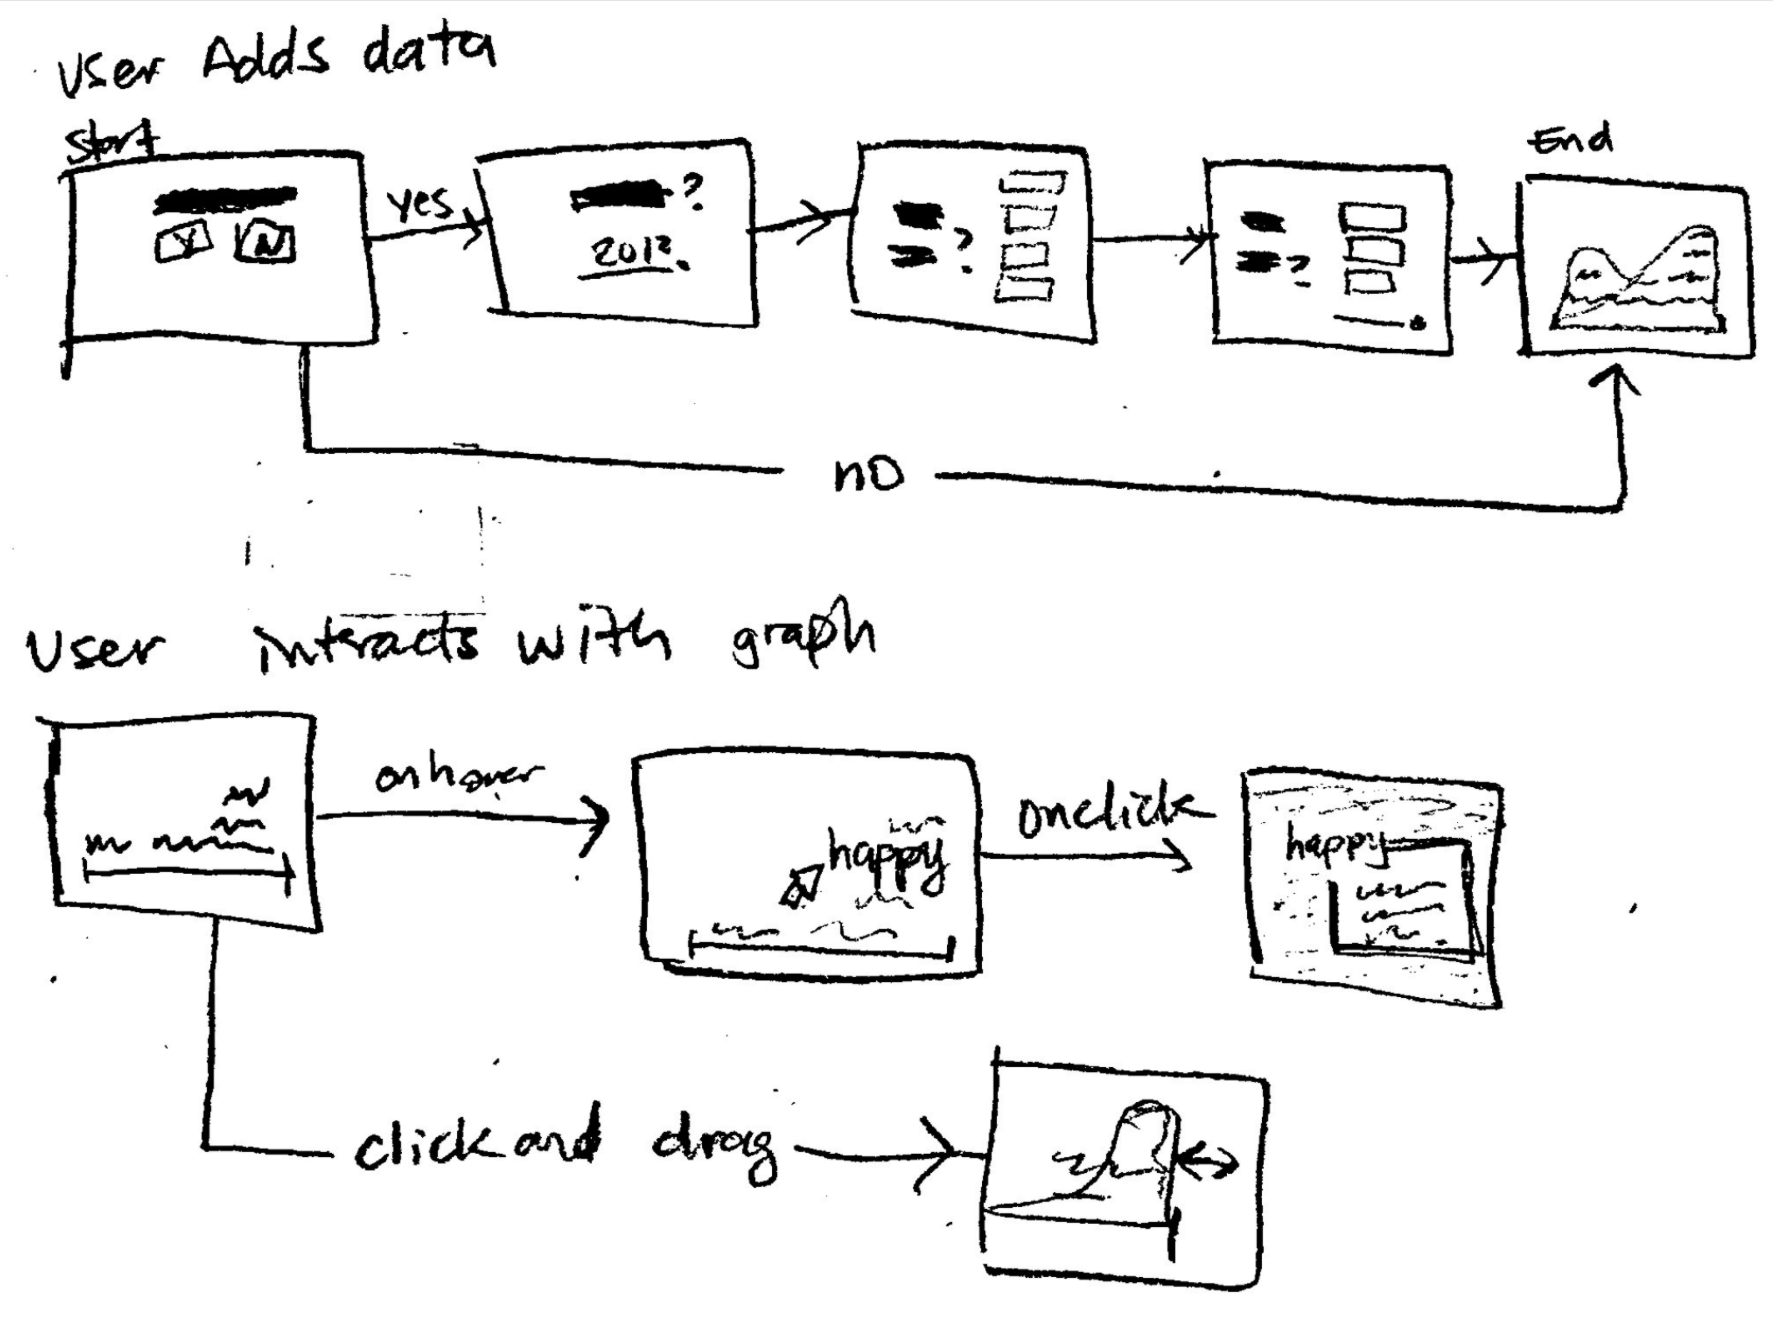 User Adds data
Start
End
Y N
yes
?
2012.
?
?
no
User interacts with graph
onhover
happy
onclick
happy
click and drag